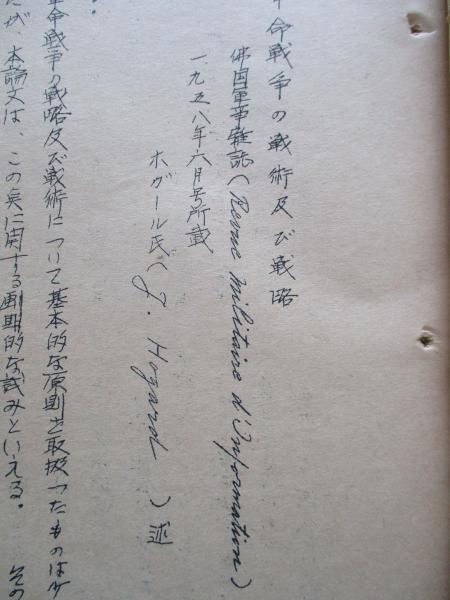 命戦争の戦術及び戦略
佛国軍事雑誌(Revue militaire d'Information)
一九五八年六月号所載
ホガール氏(J. Hogard)述
命戦争の戦略及び戦術について基本的な原則を取扱つたものは少
が、本論文は、この点に関する画期的な試みといえる。 その